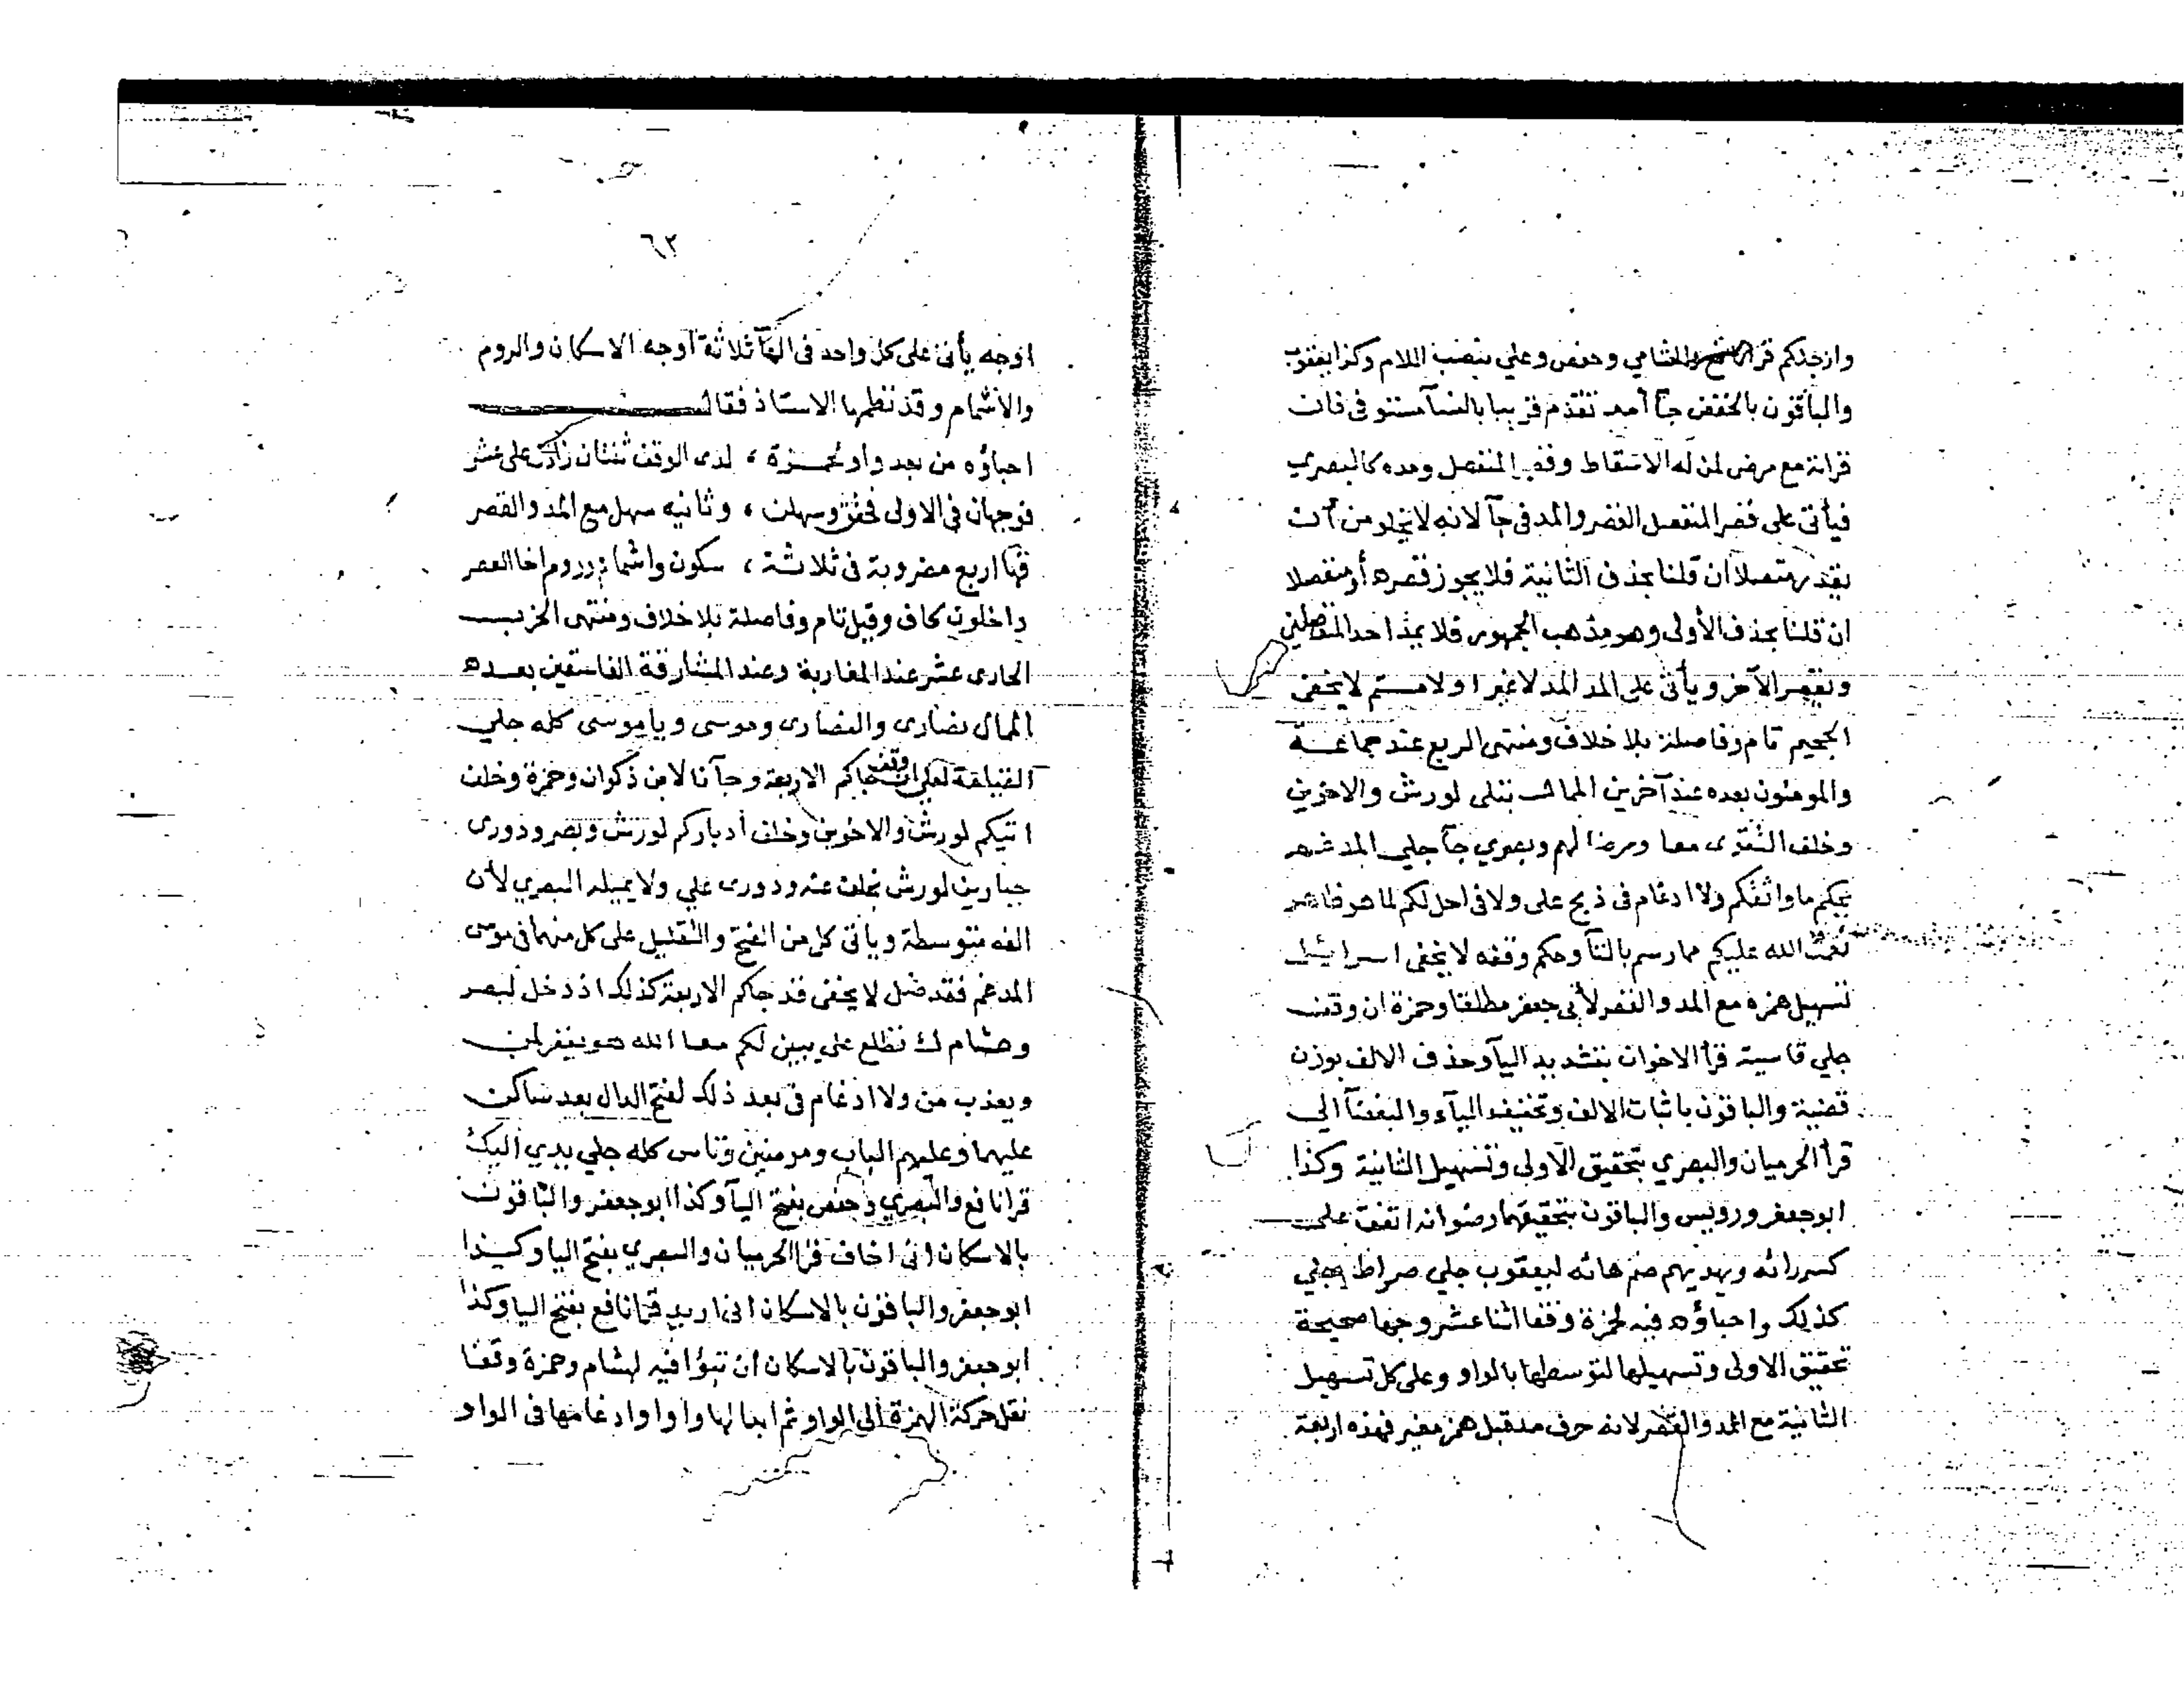 وارجلكم قرا نافع والشامي وحفص وعلي بنصب اللام وكذا يعقوب
والباقون بالخفض جآ أحد تقدم قريبا بالنسآ مستوفى فان
قراته مع مرضى لمن له الاسقاط وقصر المنفصل وحده كالبصري
فيأتى على قصر المنفصل القصر والمد فى جآ لانه لا يخلو من ان
يقدر متصلا ان قلنا بحذف الثانية فلا يجوز قصره أو منفصلا
ان قلنا بحذف الأولى وهو مذهب الجمهور فلا يمد احد المنفصلين
ويقصر الآخر ويأتى على المد المد لا غير اولامستم لا يخفى
الجحيم تام وفاصلة بلا خلاف ومنتهى الربع عند جماعة
والمومنون بعده عند آخرين الممال يتلى لورش والاخوين
وخلف التقوى معا ومرضا لهم وبصري جآ جلي المدغم
يحكم ما واثقكم ولا ادغام فى ذبح على ولا فى احل لكم لما هو ظاهر
نعمت الله عليكم مما رسم بالتآ وحكم وقفه لا يخفى اسرائيل
تسهيل همزه مع المد والقصر لأبى جعفر مطلقا وحمزة ان وقف
جلي قاسية قرأ الاخوان بتشديد اليآ وحذف الالف بوزن
قضية والباقون باثبات الالف وتخفيف اليآء والبغضآ الى
قرأ الحرميان والبصري بتحقيق الاولى وتسهيل الثانية وكذا
ابو جعفر ورويس والباقون بتحقيقهما رضوانه اتفق على
كسر رائه ويهديهم ضم هائه ليعقوب جلي صراط جلي
كذلك واحباؤه فيه لحمزة وقفا اثنا عشر وجها صحيحة
تحقيق الاولى وتسهيلها لتوسطها بالواو وعلى كل تسهيل
الثانية مع المد والقصر لانه حرف مد قبل همز مغير فهذه اربعة
٦٣
اوجه يأتى على كل واحد فى الهآ ثلاثة أوجه الاسكان والروم
والاشمام وقد نظمها الاستاذ فقال
احباؤه من بعد واو لحمزة ، لدى الوقف ثنتان زادت على عشر
فوجهان فى الاولى فحقق وسهلن ، وثانيه سهل مع المد والقصر
فها اربع مضروبة فى ثلاثة ، سكون واشمام وروم اخا العصر
داخلون كاف وقيل تام وفاصلة بلا خلاف ومنتهى الحزب
الحادى عشر عند المغاربة وعند المشارقة الفاسقين بعده
الممال نصارى والنصارى وموسى وياموسى كله جلي
القيامة لعلي ان وقف جاكم الاربعة وجآنا لابن ذكوان وحمزة وخلف
اتيكم لورش والاخوين وخلف أدباركم لورش وبصر ودورى
جبارين لورش بخلف عنه ودورى علي ولا يميله البصري لأن
الفه متوسطة وياتى كل من الفتح والتقليل على كل منهما فى موسى
المدغم فقد ضل لا يخفى قد جاكم الاربعة كذلك اذ دخل لبصر
وهشام ك تطلع على يبين لكم معا الله هو يغفر لمن
ويعذب من ولا ادغام فى بعد ذلك لفتح الدال بعد ساكن
عليهما وعليهم الباب ومومنين وتاس كله جلي يدي اليك
قرا نافع والبصري وحفص بفتح اليآ وكذا ابو جعفر والباقون
بالاسكان انى اخاف قرا الحرميان والبصري بفتح اليا وكذا
ابو جعفر والباقون بالاسكان انى اريد قرا نافع بفتح اليا وكذا
ابو جعفر والباقون بالاسكان أن تبؤا فيه لهشام وحمزة وقفا
نقل حركة الهمزة الى الواو ثم ابدالها واوا وادغامها فى الواو